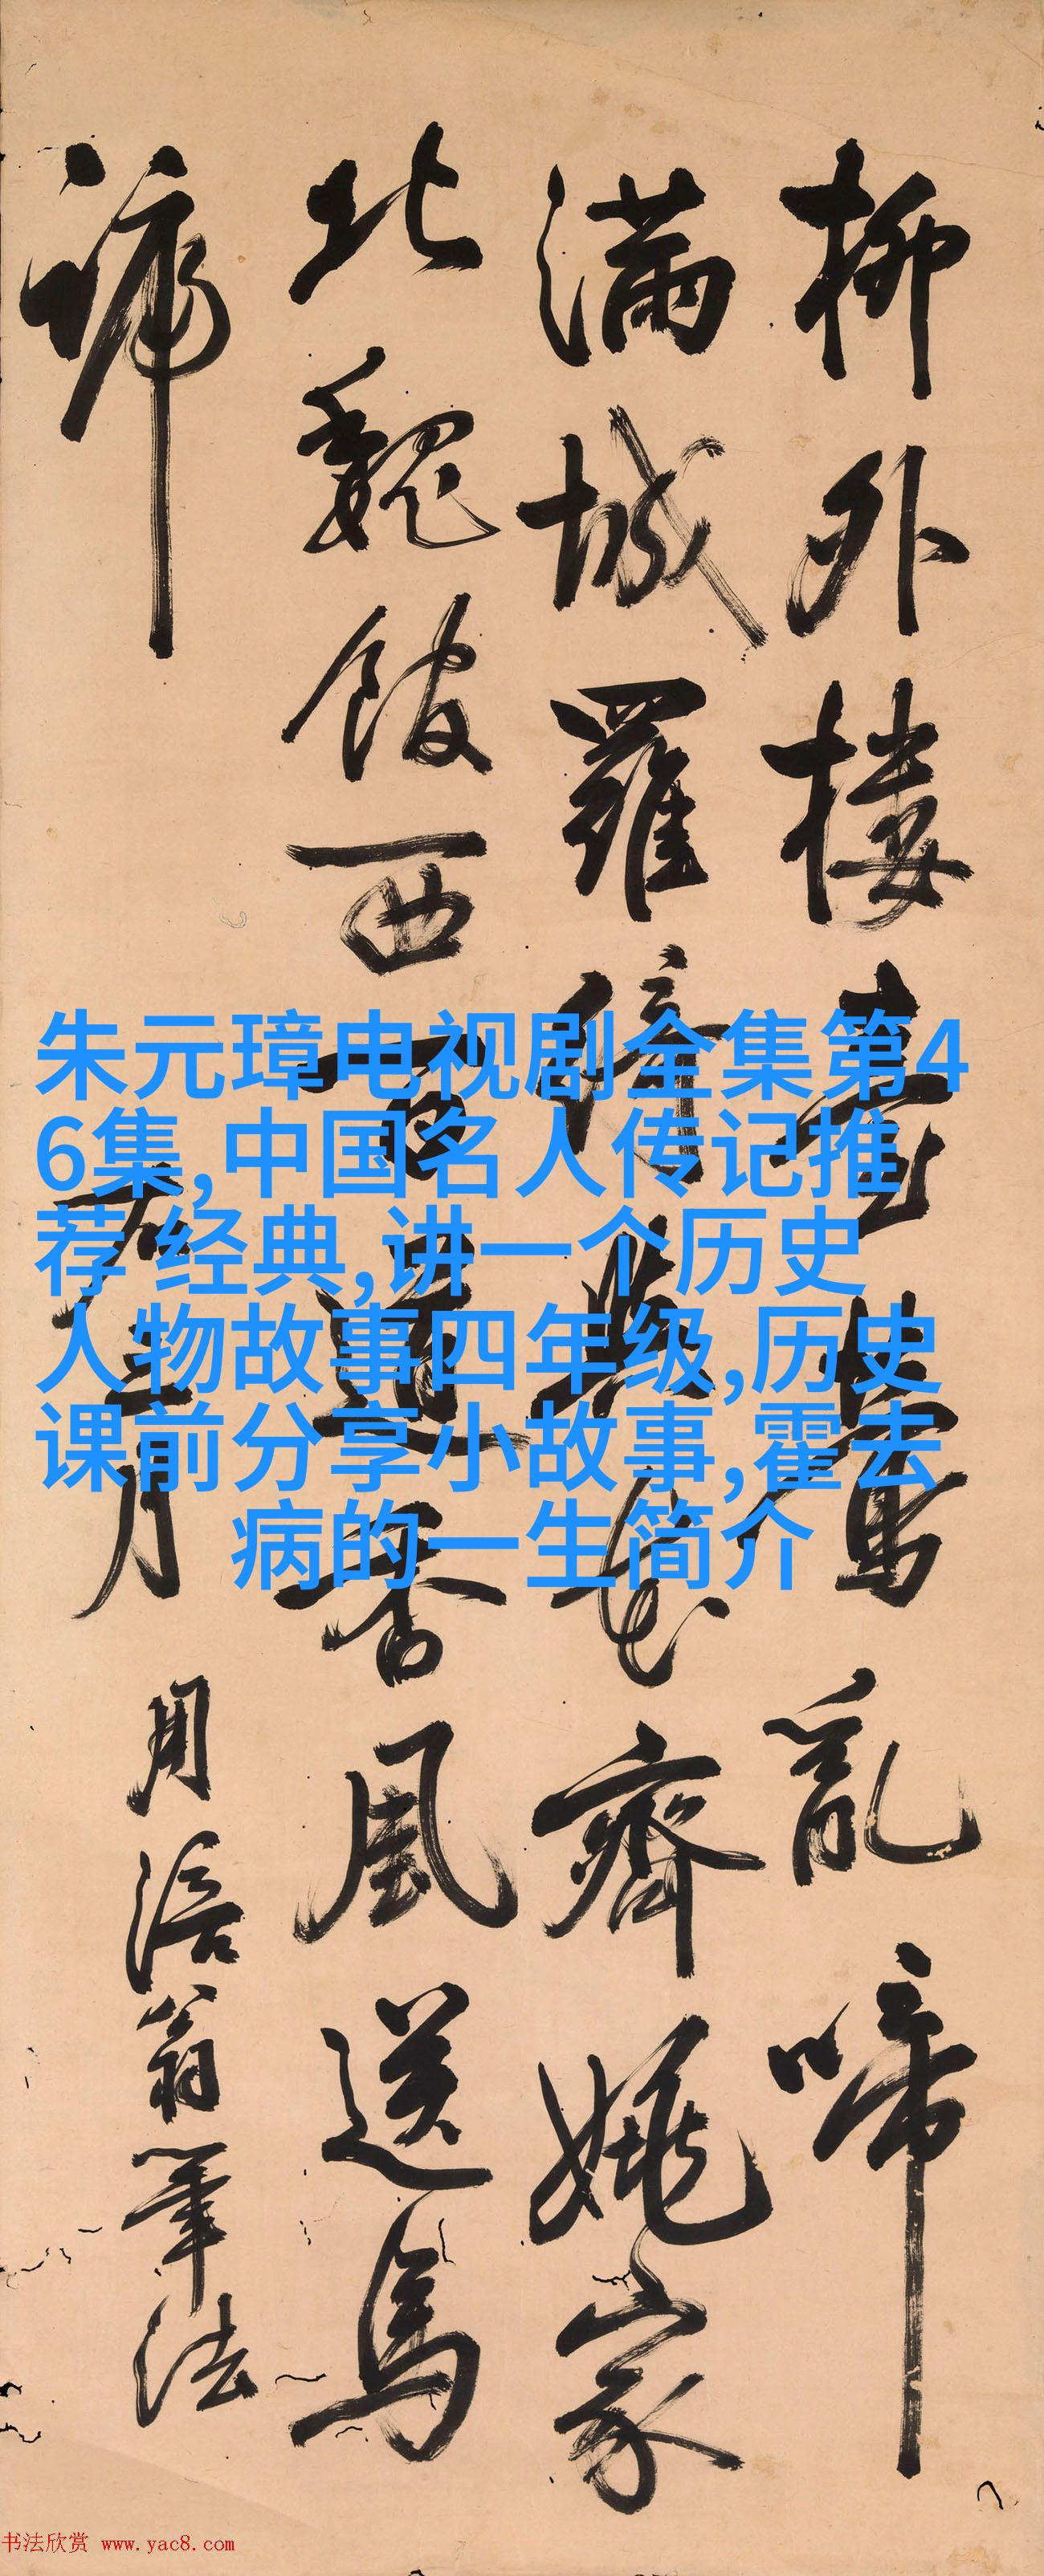 柳外樓臺鶯亂啼
滿城羅綺
齊姚家
北魏館西 香風送馬
蹄
月
用涪翁筆法
朱元璋电视剧全集第4
6集,中国名人传记推
荐 经典,讲一个历史
人物故事四年级,历史
课前分享小故事,霍去
病的一生简介
书法欣赏 www.yac8.com